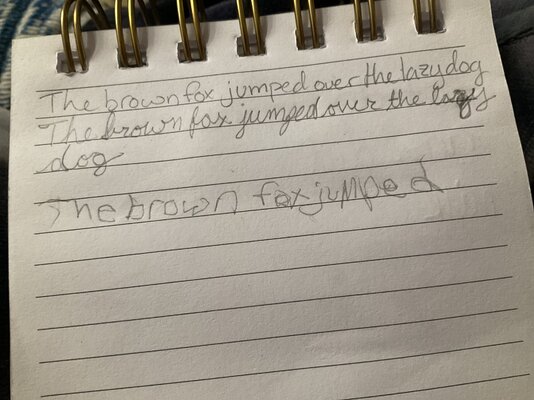 The brown fox jumped over the lazy dog
The brown fox jumped over the lazy
dog
The brown fox jumped